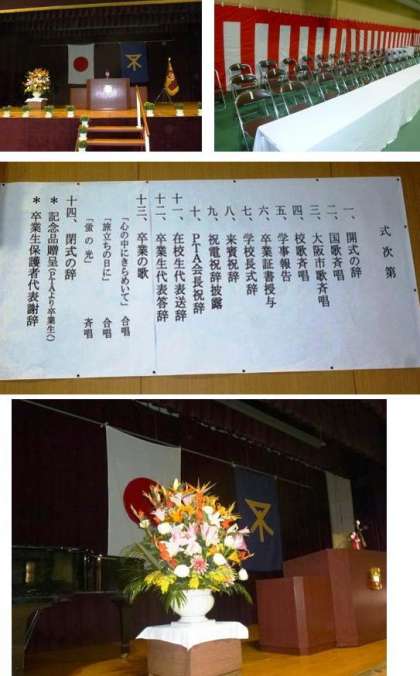 式次第
一、開式の辞
二、国歌斉唱
三、大阪市歌斉唱
四、校歌斉唱
五、学事報告
六、卒業証書授与
七、学校長式辞
八、来賓祝辞
九、祝電祝辞披露
十、PTA会長祝辞
十一、在校生代表送辞
十二、卒業生代表答辞
十三、卒業の歌
「心の中にきらめいて」合唱
「旅立ちの日に」合唱
「蛍の光」斉唱
十四、閉式の辞
＊記念品贈呈(PTAより卒業生へ)
＊卒業生保護者代表謝辞